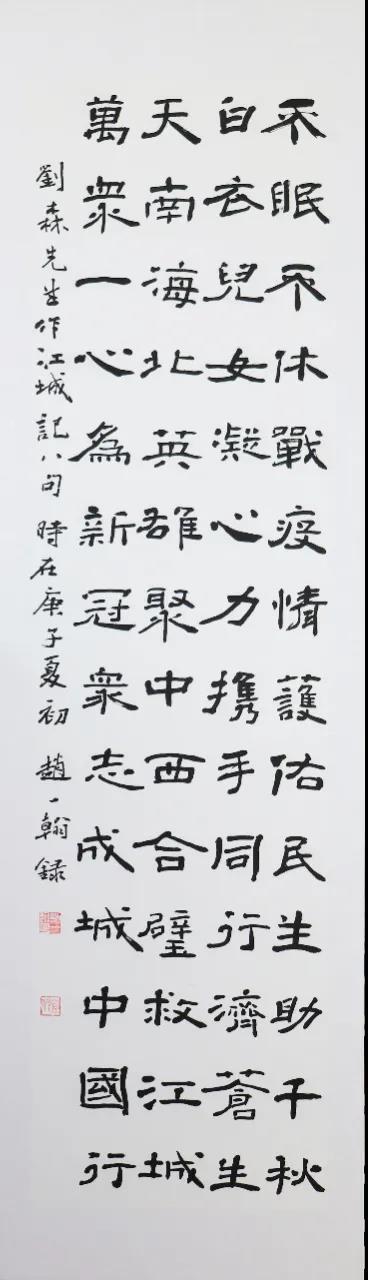 不眠不休戰疫情護佑民生助千秋
白衣兒女凝心力攜手同行濟蒼生
天南海北英雄聚中西合璧救江城
萬眾一心為新冠眾志成城中國行
劉森先生作江城記八句時在庚子夏初趙一翰錄